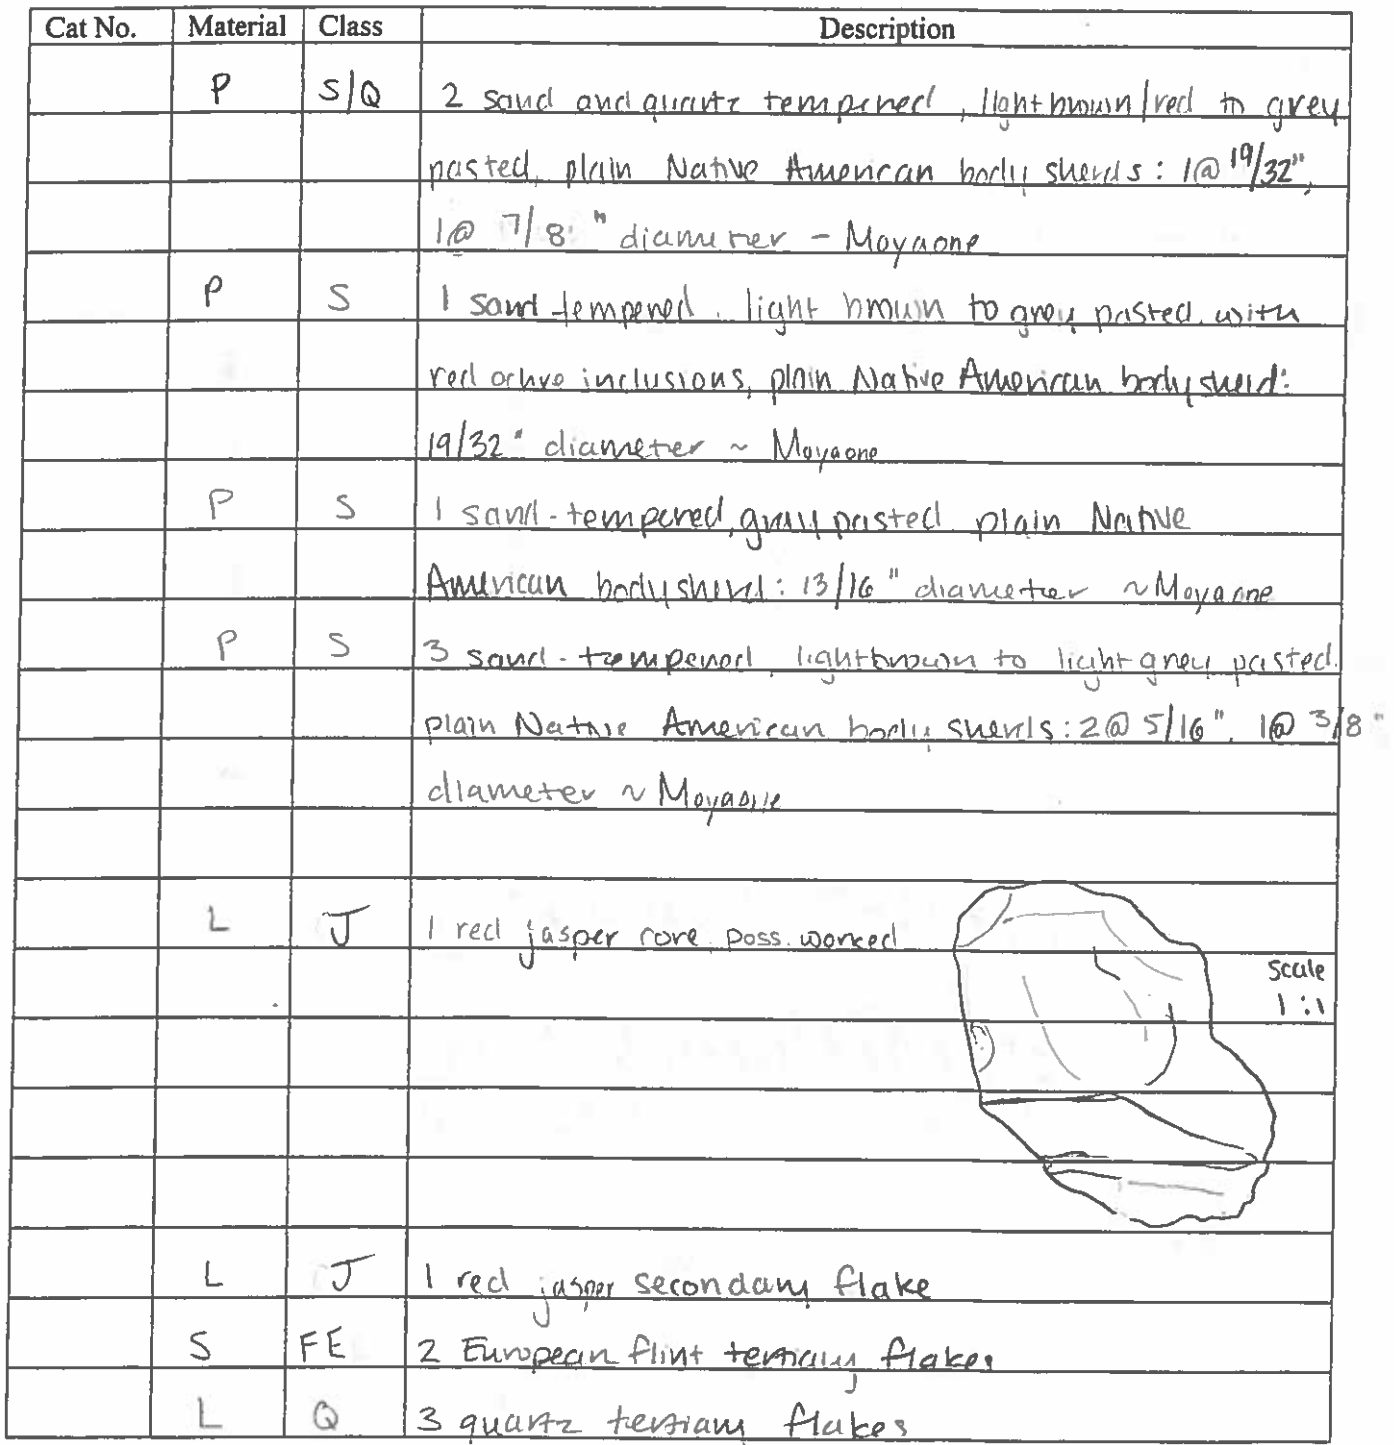 Cat No. Material Class Description
P S/Q 2 sand and quartz tempered, light brown/red to grey
pasted, plain Native American body sherds: 1@ 19/32",
1@ 7/8" diameter - Moyaone
P S 1 sand-tempered, light brown to grey pasted with
red ochre inclusions, plain Native American body sherd:
19/32" diameter ~ Moyaone
P S 1 sand-tempered, grey pasted plain Native
American body sherd: 13/16" diameter ~ Moyaone
P S 3 sand-tempered, light brown to light grey pasted,
plain Native American body sherds: 2@ 5/16", 1@ 3/8"
diameter ~ Moyaone
L J 1 red jasper core poss. worked
scale
1:1
L J 1 red jasper secondary flake
S FE 2 European flint tertiary flakes
L Q 3 quartz tertiary flakes